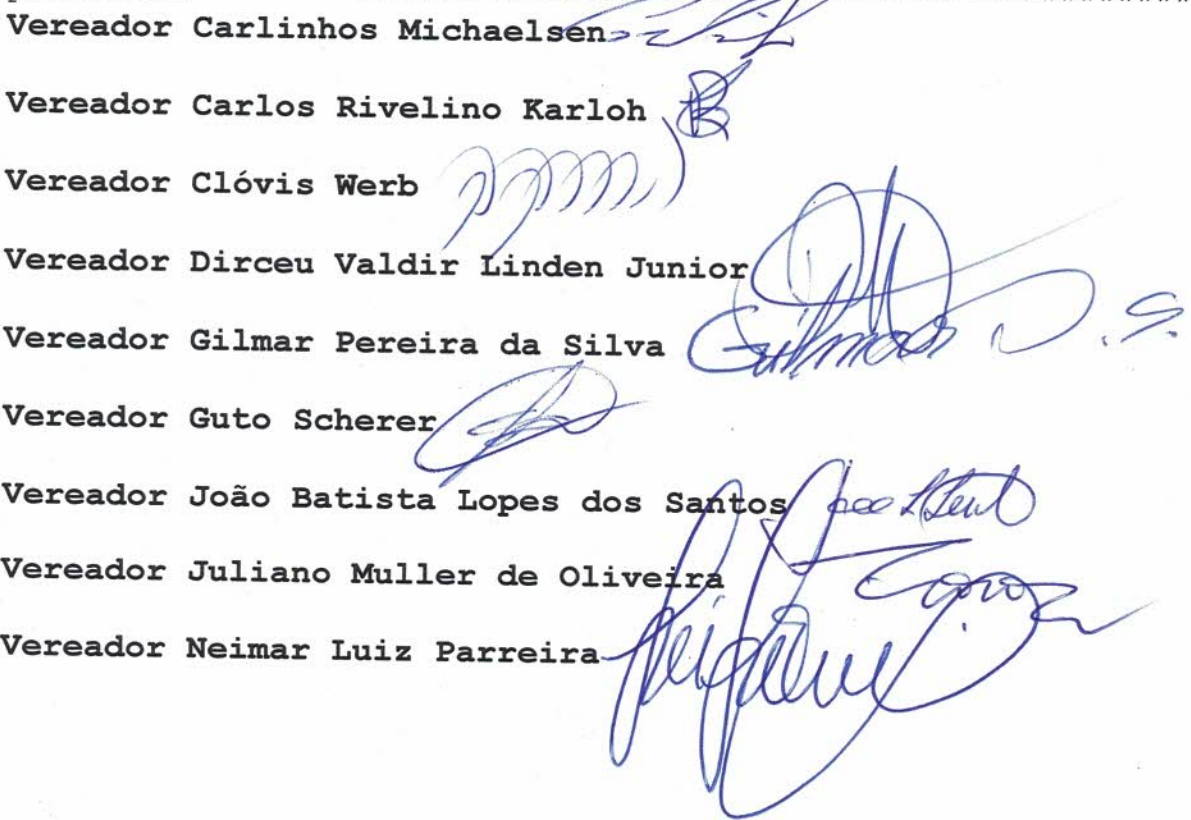 Vereador Carlinhos Michaelsen
Vereador Carlos Rivelino Karloh
Vereador Clóvis Werb
Vereador Dirceu Valdir Linden Junior
Vereador Gilmar Pereira da Silva
Vereador Guto Scherer
Vereador João Batista Lopes dos Santos
Vereador Juliano Muller de Oliveira
Vereador Neimar Luiz Parreira